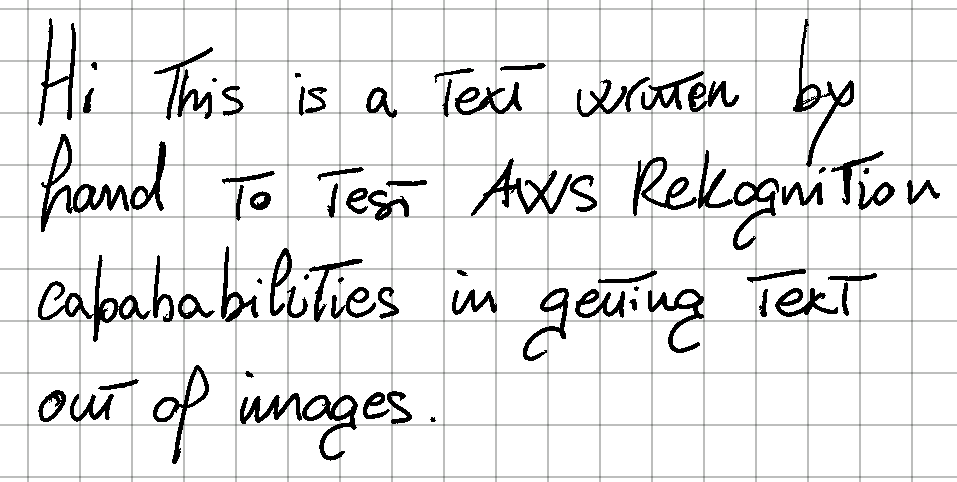 Hi This is a Text written by
hand To Test AWS Rekognition
capabababilities in getting Text
out of images.